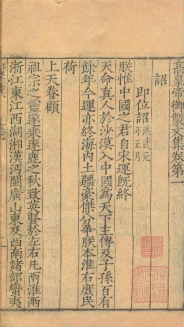 高皇帝御製文集卷第一
詔
即位詔 洪武元年正月
朕惟中國之君自宋運既終
天命真人於沙漠入中國為天下主傳及子孫百有
餘年今運亦終海內土疆豪傑分爭朕本淮右庶民
荷
上天眷顧
祖宗之靈遂乘逐鹿之秋致英賢於左右凡兩淮兩
浙江東江西湖湘漢沔閩廣山東及西南諸郡蠻夷